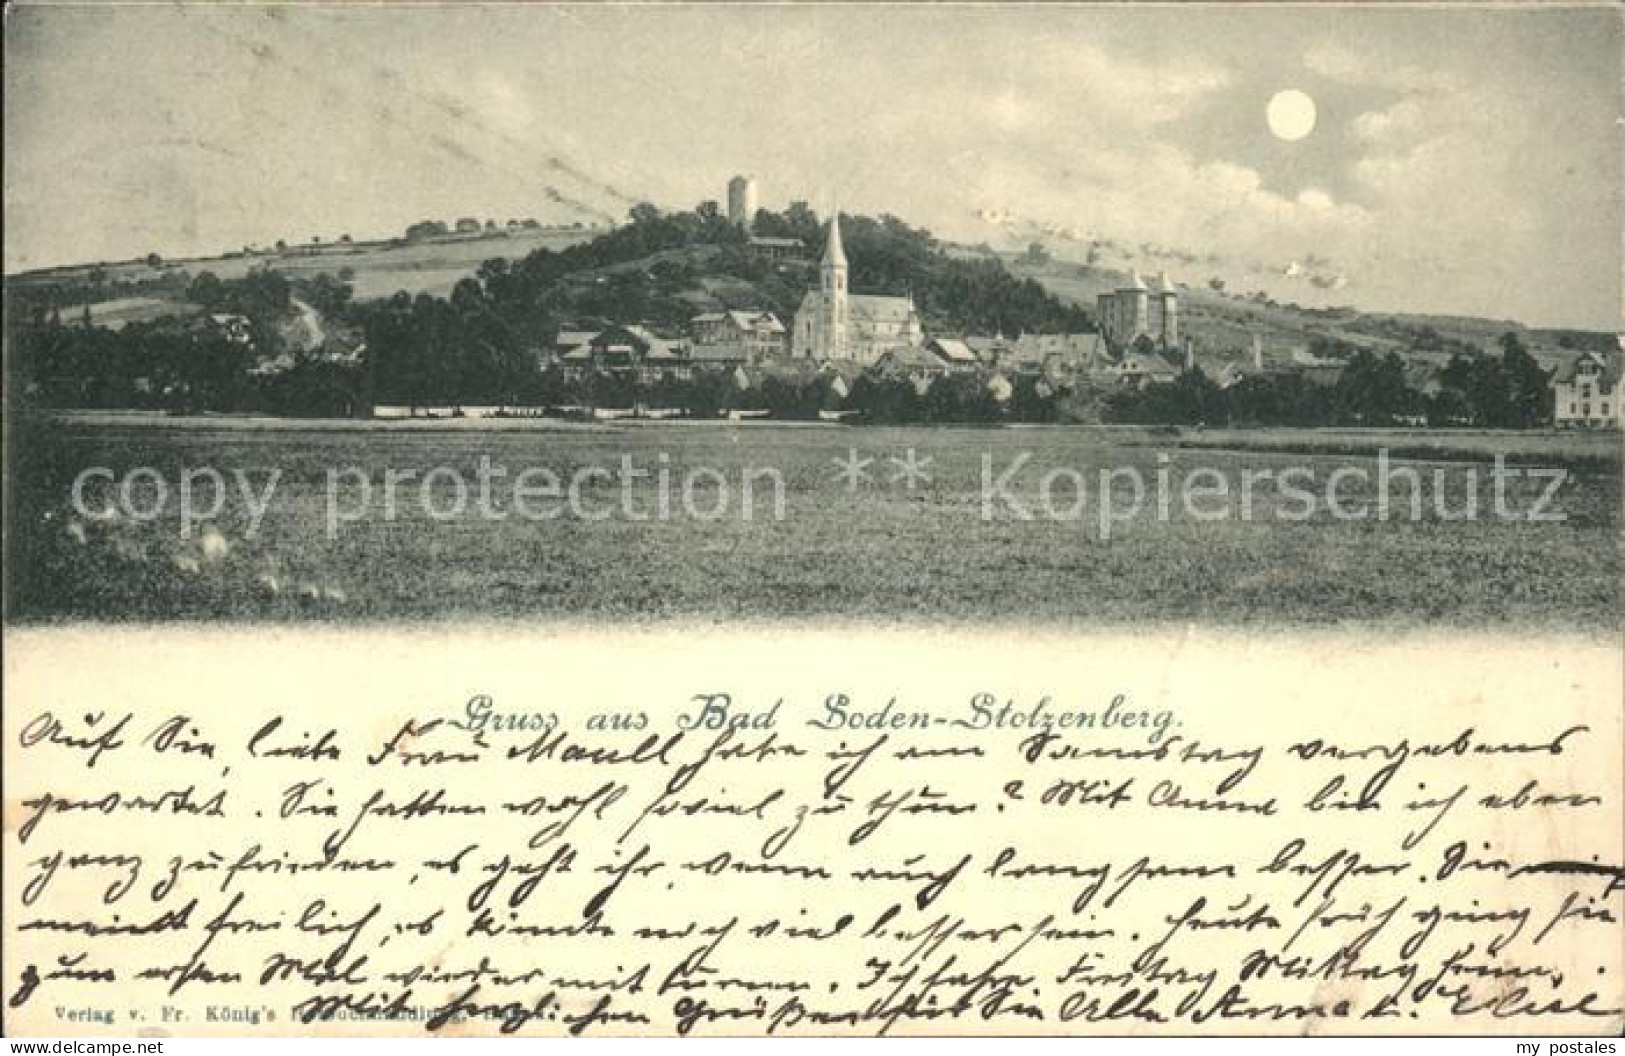 copy protection ** Kopierschutz
Gruss aus Bad Soden-Stolzenberg.
Auf Sie, liebe Frau Maull habe ich am Samstag vergebens
gewartet. Sie hatten wohl soviel zu thun? Mit Anna bin ich eben
ganz zufrieden, es geht ihr, wenn auch langsam besser. Sie
meint freilich, es könnte noch viel besser sein. Heute früh ging sie
zum ersten Mal wieder mit turnen. Ich fahre Freitag Mittag heim.
Mit herzlichen Grüßen für Sie Alle Anna u.
Verlag v. Fr. König's
my postales